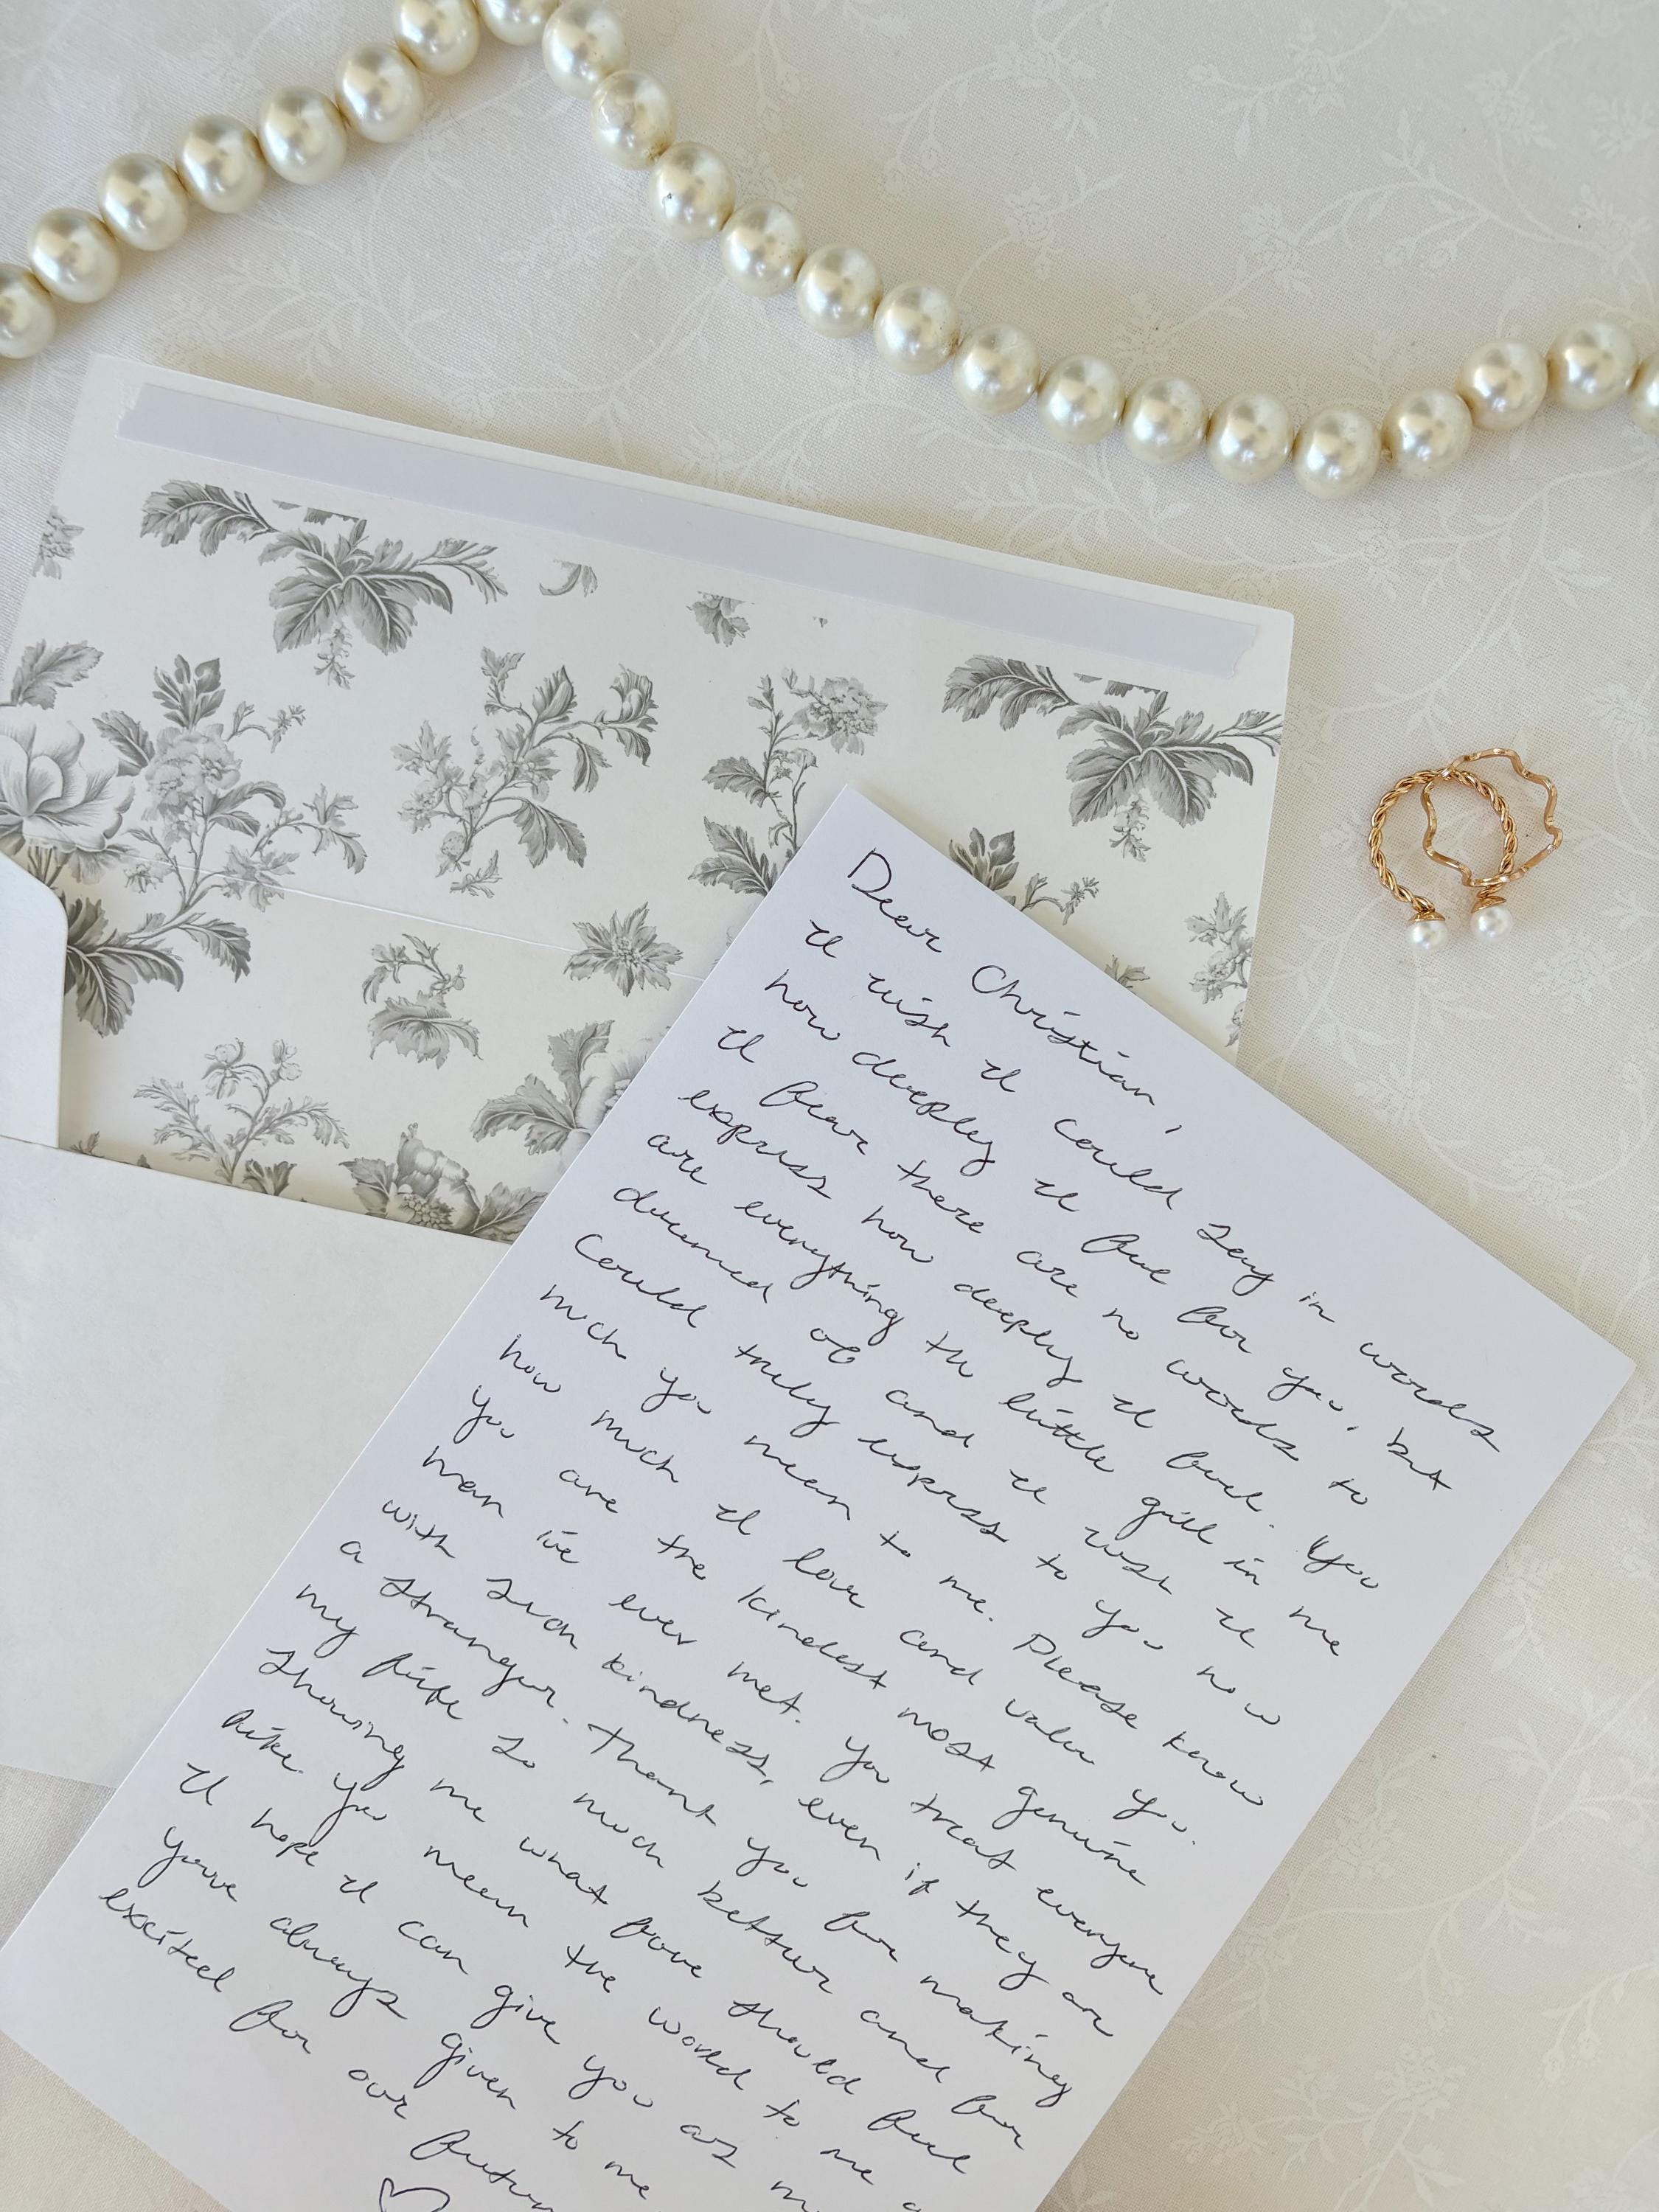 Dear Christian,
I wish I could say in words
how deeply I feel for you, but
I fear there are no words to
express how deeply I feel. You
are everything the little girl in me
dreamed of and I wish I
could truly express to you how
much you mean to me. Please know
how much I love and value you.
you are the kindest most genuine
man ive ever met. You treat everyone
with such kindness, even if they are
a stranger. Thank you for making
my life so much better and for
showing me what love should feel
like. You mean the world to me
I hope I can give you as
youve always given to me
excited for our